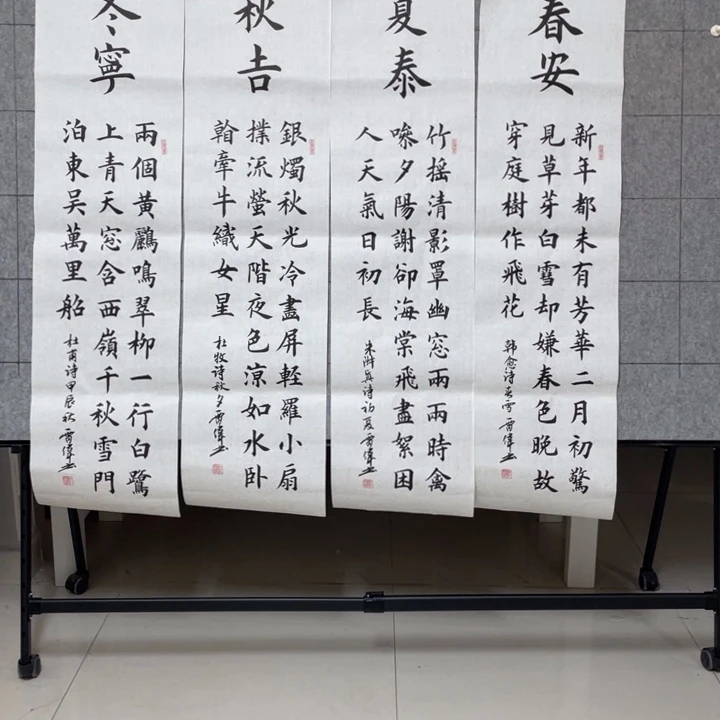 春安
新年都未有芳華二月初驚
見草芽白雪却嫌春色晚故
穿庭樹作飛花
韩愈诗春雪 雷偉书
夏泰
竹摇清影罩幽窓兩兩時禽
噪夕陽謝卻海棠飛盡絮困
人天氣日初長
朱淑真诗初夏 雷偉书
秋吉
銀燭秋光冷畫屏輕羅小扇
撲流螢天階夜色涼如水卧
看牽牛織女星
杜牧诗秋夕 雷偉书
冬寧
兩個黄鸝鳴翠柳一行白鷺
上青天窓含西嶺千秋雪門
泊東吴萬里船
杜甫诗甲辰秋 雷偉书